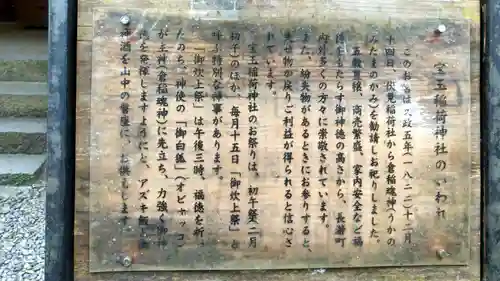 宝玉稲荷神社のいわれ
このおやしろは文政五年(一八二二)十二月
十四日、伏見稲荷社から倉稲魂神(うかの
みたまのかみ)を勧請しお祀りしました。
五穀豊穣、商売繁盛、家内安全など福
徳をもたらす御神徳の高さから、長瀞町
内外多くの方々に崇敬されています。
また、紛失物があるときにお参りすると、
ませ物が戻りご利益が得られると信心さ
れています。
宝玉稲荷神社のお祭りは、初午祭二月
初午のほか、毎月十五日「御炊上祭」と
呼ぶ特別な神事があります。
「御炊上祭」は午後三時、福徳を祈
たのち、神使の「御白狐」(オビャッコ)
が主神倉稲魂神に先立ち、力強く御神
徳を発揮しますようにと、アズキ飯と
神酒を山中の督座に、お供えします